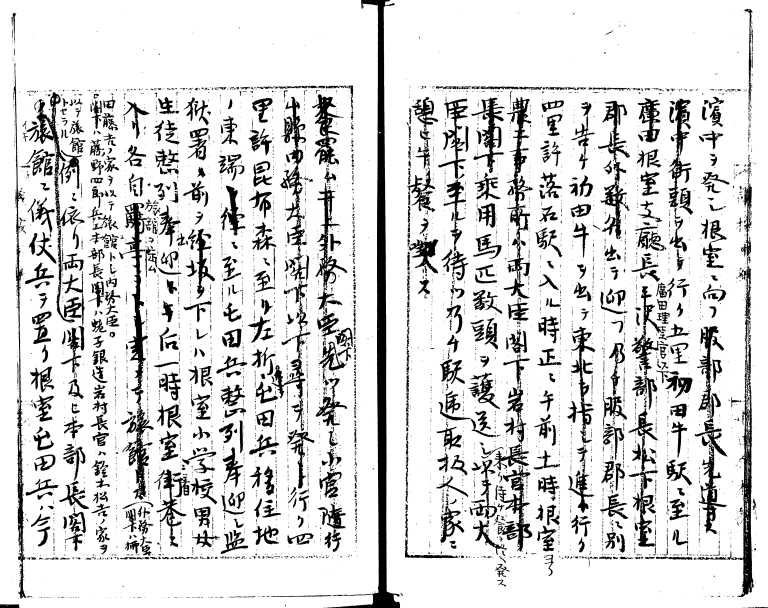 濱中ヲ発シ根室ニ向フ服部郡長先導ス
濱中街頭ヲ出テ行ク五里初田牛駅ニ至ル
廣田理事官以下
廣田根室支廳長 警部長松下根室
郡長外数名出テ迎フ乃チ服部郡長ニ別
ヲ告ケ初田牛ヲ出テ東北ヲ指シテ進ム行ク
四里許落石駅ニ入ル時正ニ午前十一時根室ヨリ
農工事務所ハ両大臣閣下岩村長官本部
長閣下乗用馬匹数頭ヲ護送シ来ヲ両大
臣閣下至ルヲ待ツ乃チ駅逓取扱人ノ家ニ
憩ヒ午餐ヲ喫ス
餐罷ム井上外務大臣閣下先ツ発シ小宮随行
山縣内務大臣閣下以下尋テ発ス行ク四
里許昆布森ニ至リ左折屯田兵移住地
ノ東端ニ至ル屯田兵整列奉迎シ監
獄署ノ前ヲ経坂ヲ下レハ根室小学校男女
生徒整列奉迎ス午后一時根室街巷ニ
入リ各自 旅館
外務大臣閣下ハ柳
田藤吉ノ家ヲ以テ旅館トシ内務大臣
閣下ハ藤野四郎兵エ本部長閣下ハ蛯子銀造岩村長官ハ 松吉ノ家ヲ
以テ旅館トセラル
例ニ依リ両大臣閣下及ヒ本部長閣下
ノ旅館ニ儀仗兵ヲ置ク根室屯田兵ハ今